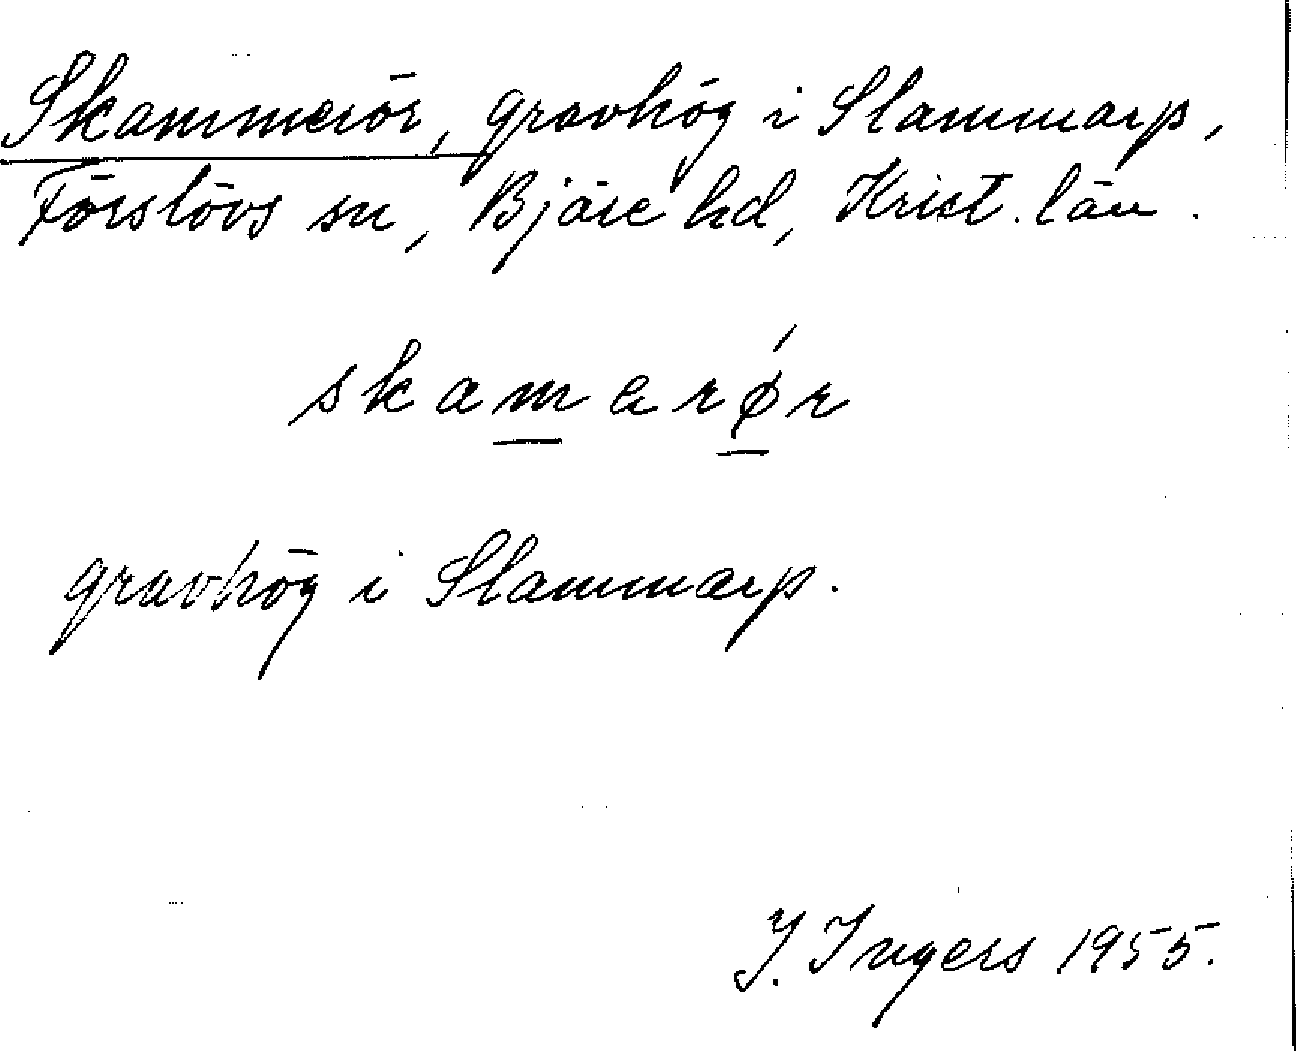 Skammerör, gravhög i Slammarp,
Förslövs sn, Bjäre hd, Krist. län.
skamerǿr
gravhög i Slammarp.
I. Ingers 1955.